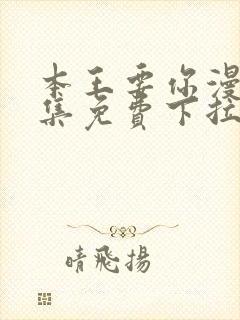 本王要你漫
集免費下拉
晴飛揚